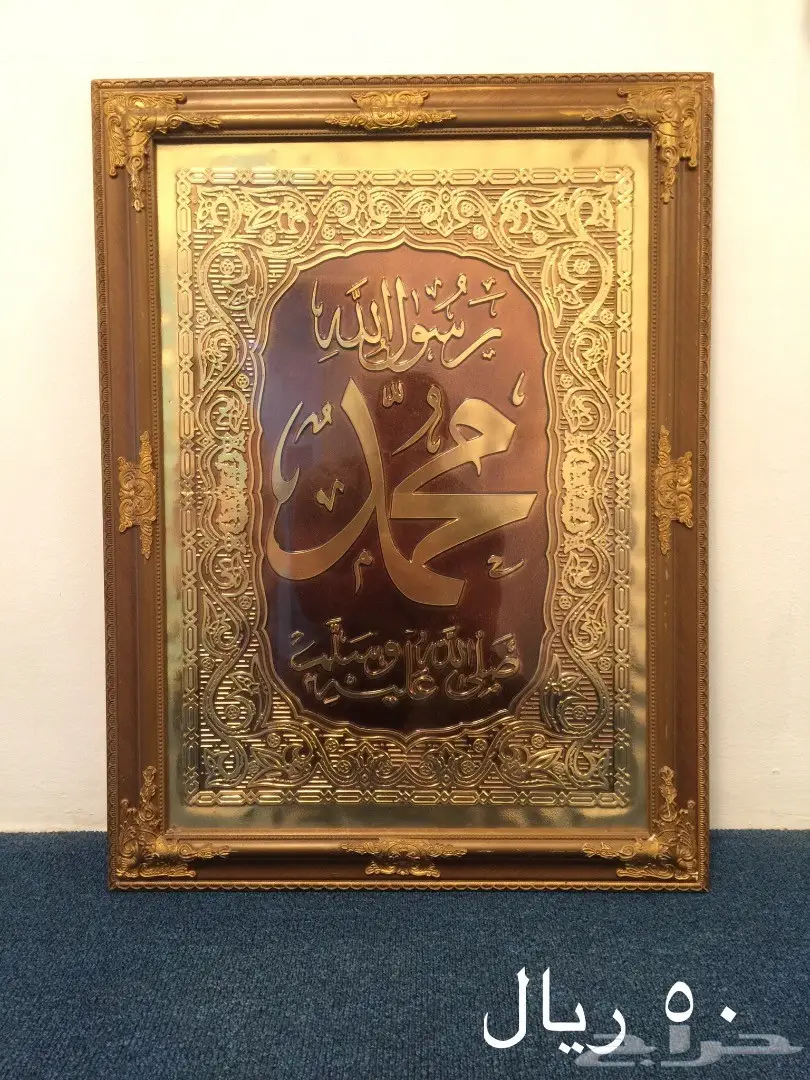 رَسُولُ اللَّهِ
مُحَمَّد
صَلَّى اللَّهُ عَلَيْهِ وَسَلَّمَ
٥٠ ريال
حراج